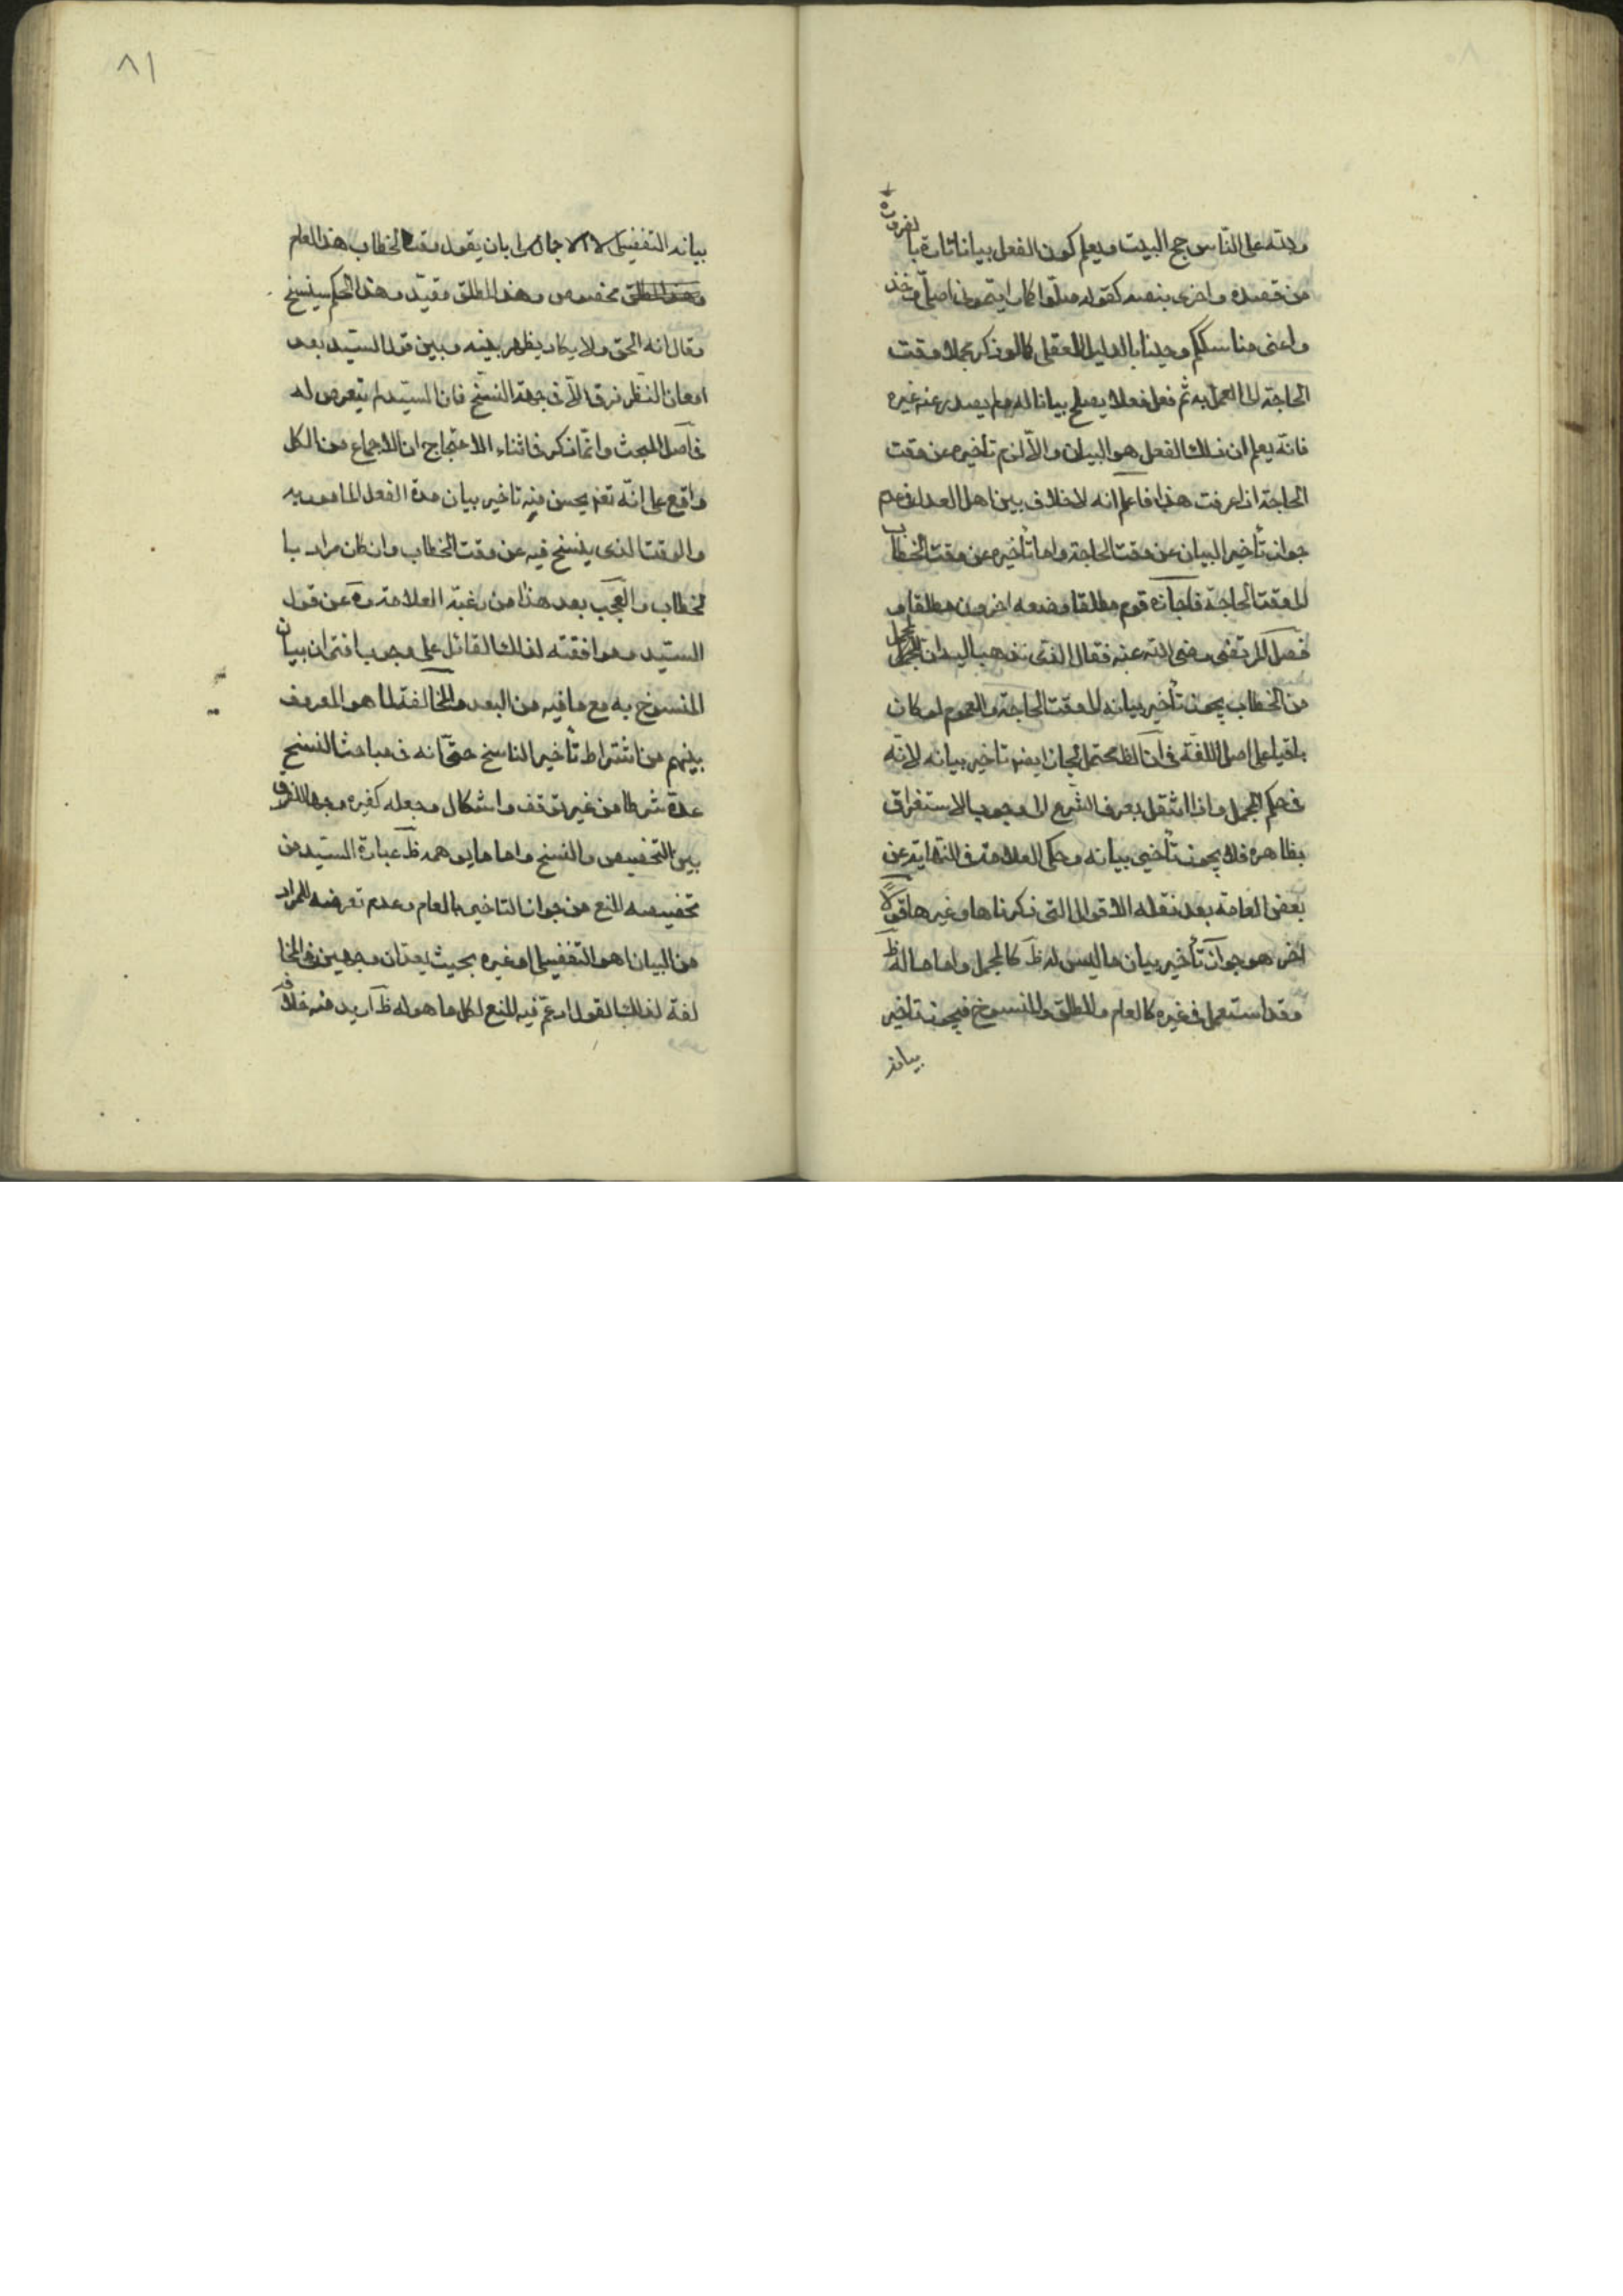 ولله على الناس حج البيت ويعلم كون الفعل بيانا تارة بالضرورة
من قصده واخرى بنصه كقوله صلوا كما رايتموني اصلي وخذ
واعنى مناسككم وحينا بالدليل العقلي كما لو ذكر مجملا وقت
الحاجة الى العمل به ثم فعل فعلا يصلح بيانا له ولم يصدر عنه غيره
فانه يعلم ان ذلك الفعل هو البيان والّا لزم تأخيره عن وقت
الحاجة اذا عرفت هذا فاعلم انه لا خلاف بين اهل العدل في عدم
جواز تأخير البيان عن وقت الحاجة واما تأخيره عن وقت الخطاب
الى وقت الحاجة فاجازه قوم مطلقا ومنعه اخرون مطلقا و
فصل المرتضى رضي الله عنه فقال الذي نذهب اليه ان المجمل
من الخطاب يجوز تأخير بيانه الى وقت الحاجة والعموم لو كان
باقيا على اصل اللغة في ان الظ محتمل لجاز ايضا تاخير بيانه لانه
في حكم المجمل واذا انتقل بعرف الشرع الى وجوب الاستغراق
بظاهره فلا يجوز تأخير بيانه وحكى العلامة في النهاية عن
بعض العامة بعد نقله الاقوال التي ذكرناها وغيرها قولا
اخر هو جواز تأخير بيان ما ليس له ظ كالمجمل واما ما له ظ
وقد استعمل في غيره كالعام والمطلق والمنسوخ فيجوز تاخير
بيانه
٨١
بيانه التفصيلى لا الاجمالى بان يقول وقت الخطاب هذا العام
مخصوص وهذا المطلق مقيّد وهذا الحكم سينسخ
وقال انه الحق ولا يكاد يظهر بينه وبين قول السيّد بعد
امعان النظر فرق الّا في جهة النسخ فان السيّد لم يتعرض له
في اصل المبحث وانّما ذكر في اثناء الاحتجاج ان الاجماع من الكل
واقع على انّه تعم يحسن منه تاخير بيان مدة الفعل المامور به
والوقت الذى ينسخ فيه عن وقت الخطاب وان كان مراد با
لخطاب والعجب بعد هذا من رغبة العلامة ره عن قول
السيّد وموافقته لذلك القائل على وجوب اقتران بيان
المنسوخ به مع ما فيه من البعد والمخالفة لما هو المعروف
بينهم من اشتراط تأخير الناسخ حتّى انه في مباحث النسخ
عدة شرطا من غير توقف واشكال وجعله كغيره وجه الفرق
بين التخصيص والنسخ واما ما يوهمه ظ عبارة السيّد من
تخصيصه المنع من جواز التاخير بالعام وعدم تعرضه للمراد
من البيان اهو التفصيلى او غيره بحيث يعدّان وجهين في المخا
لفة لذلك القول اذ عمّ فيه المنع لكل ما هو له ظ اريد منه خلافه